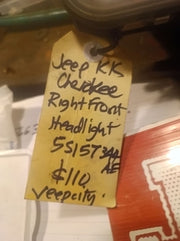 Jeep KK
Cherokee
Right Front
Headlight
55157344
AE
$110
Jeepcity.